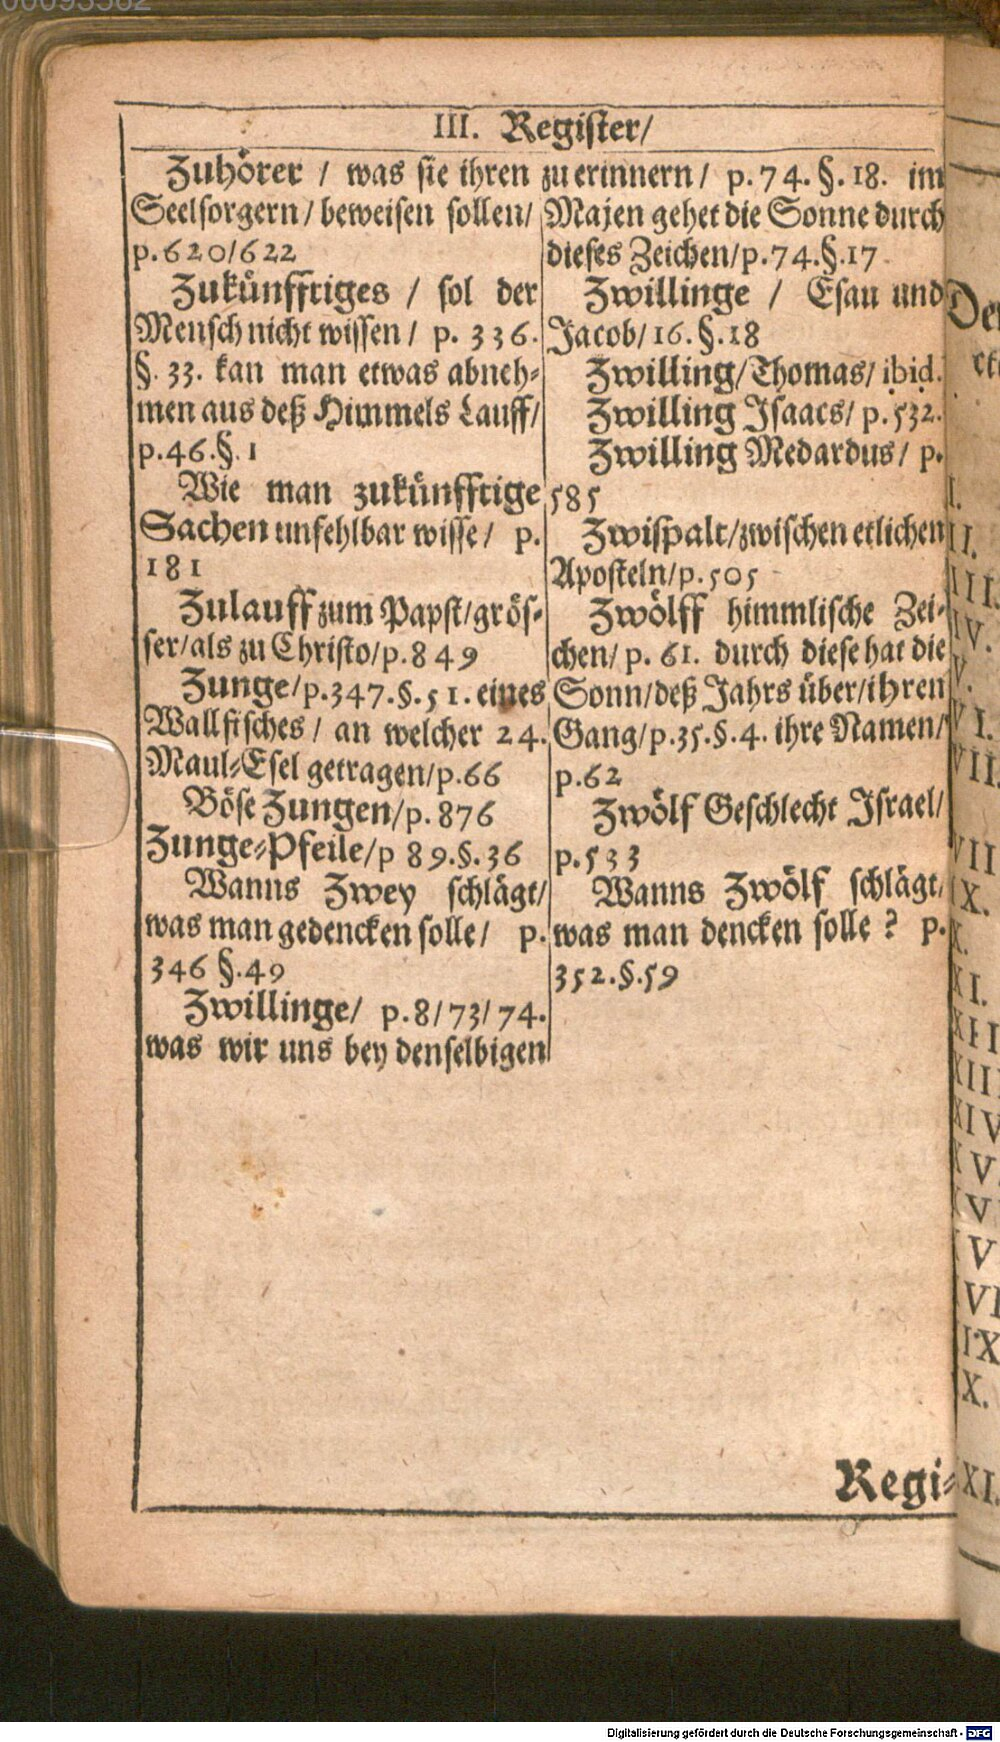 III. Register/
Zuhörer / was sie ihren
Seelsorgern/beweisen sollen/
p.620/622
Zukünfftiges / sol der
Mensch nicht wissen/ p. 336.
§. 33. kan man etwas abneh-
men aus deß Himmels Lauff/
p.46.§.1
Wie man zukünfftige
Sachen unfehlbar wisse/ p.
181
Zulauff zum Papst/grös-
ser/als zu Christo/p.849
Zunge/p.347.§.51. eines
Wallfisches / an welcher 24.
Maul-Esel getragen/p.66
Böse Zungen/p.876
Zunge-Pfeile/p 89.§.36
Wanns Zwey schlägt/
was man gedencken solle/ p.
346 §.49
Zwillinge/ p.8/73/74.
was wir uns bey denselbigen
zu erinnern/ p.74.§.18. im
Majen gehet die Sonne durch
dieses Zeichen/p.74.§.17
Zwillinge / Esau und
Jacob/16.§.18
Zwilling/Thomas/ibid.
Zwilling Isaacs/p.532.
Zwilling Medardus/ p.
585
Zwispalt/zwischen etlichen
Aposteln/p.505
Zwölff himmlische Zei-
chen/p. 61. durch diese hat die
Sonn/deß Jahrs über/ihren
Gang/p.35.§.4. ihre Namen/
p.62
Zwölf Geschlecht Israel/
p.533
Wanns Zwölf schlägt/
was man dencken solle? p.
352.§.59
Regi-
Digitalisierung gefördert durch die Deutsche Forschungsgemeinschaft - DFG